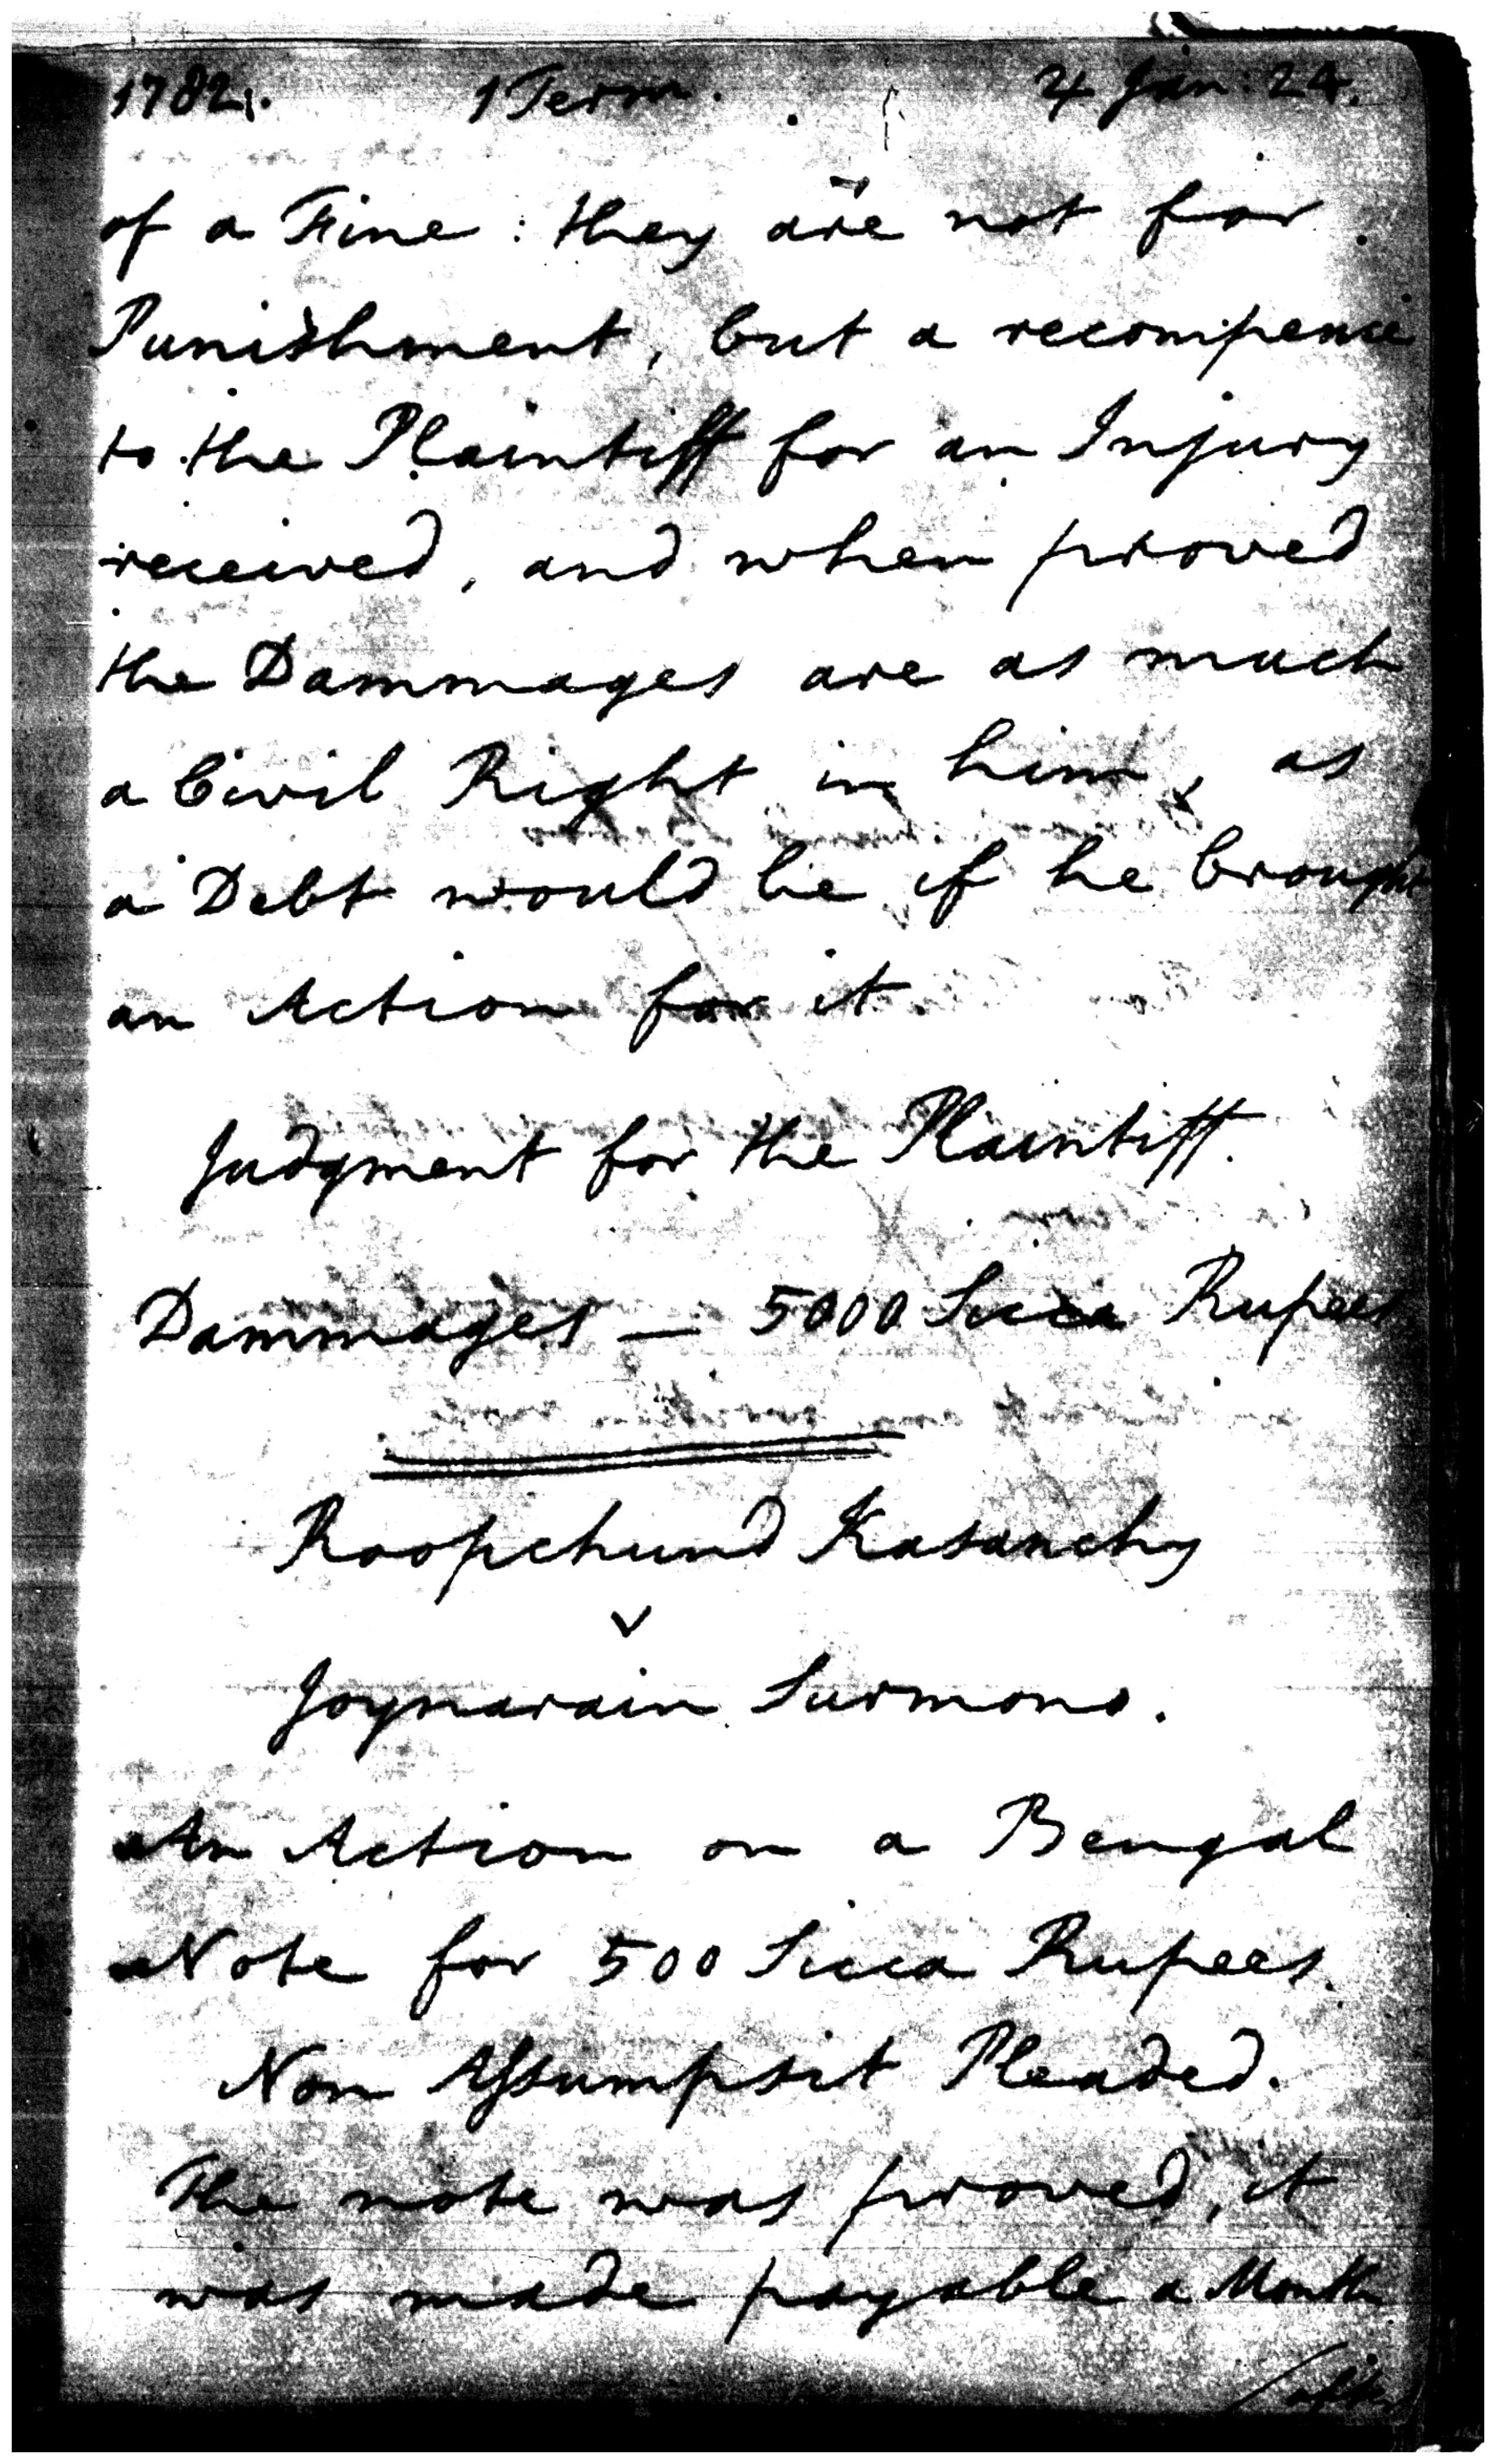 1782. 1 Term. 24 Jan: 24.
of a Fine: they are not for
Punishment, but a recompence
to the Plaintiff for an Injury
received, and when proved
the Dammages are as much
a Civil Right in him, as
a Debt would be if he brought
an Action for it
Judgment for the Plaintiff.
Dammages — 5000 Sicca Rupees
Roopchund Kasanchy
v
Joynarain Surmono.
An Action on a Bengal
Note for 500 Sicca Rupees.
Non Assumpsit Pleaded.
The note was proved, it
was made payable a Month
/after